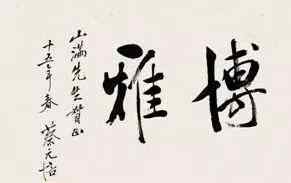 博雅
山满先生贊正
十五年春 蔡元培